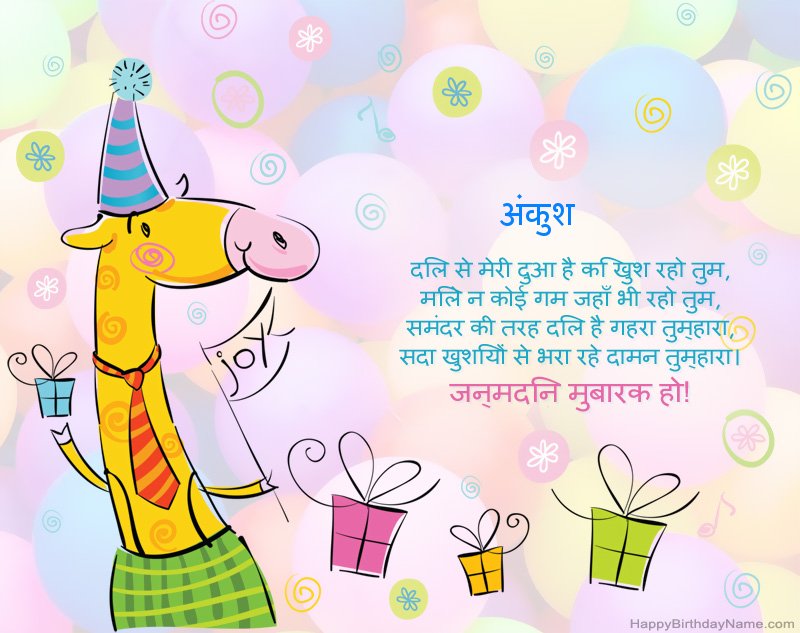 अंकुश
दलि से मेरी दुआ है क िखुश रहो तुम,
मलिे न कोई गम जहाँ भी रहो तुम,
समंदर की तरह दलि है गहरा तुम्हारा,
सदा खुशयिों से भरा रहे दामन तुम्हारा।
जन्मदनि मुबारक हो!
joy
HappyBirthdayName.com